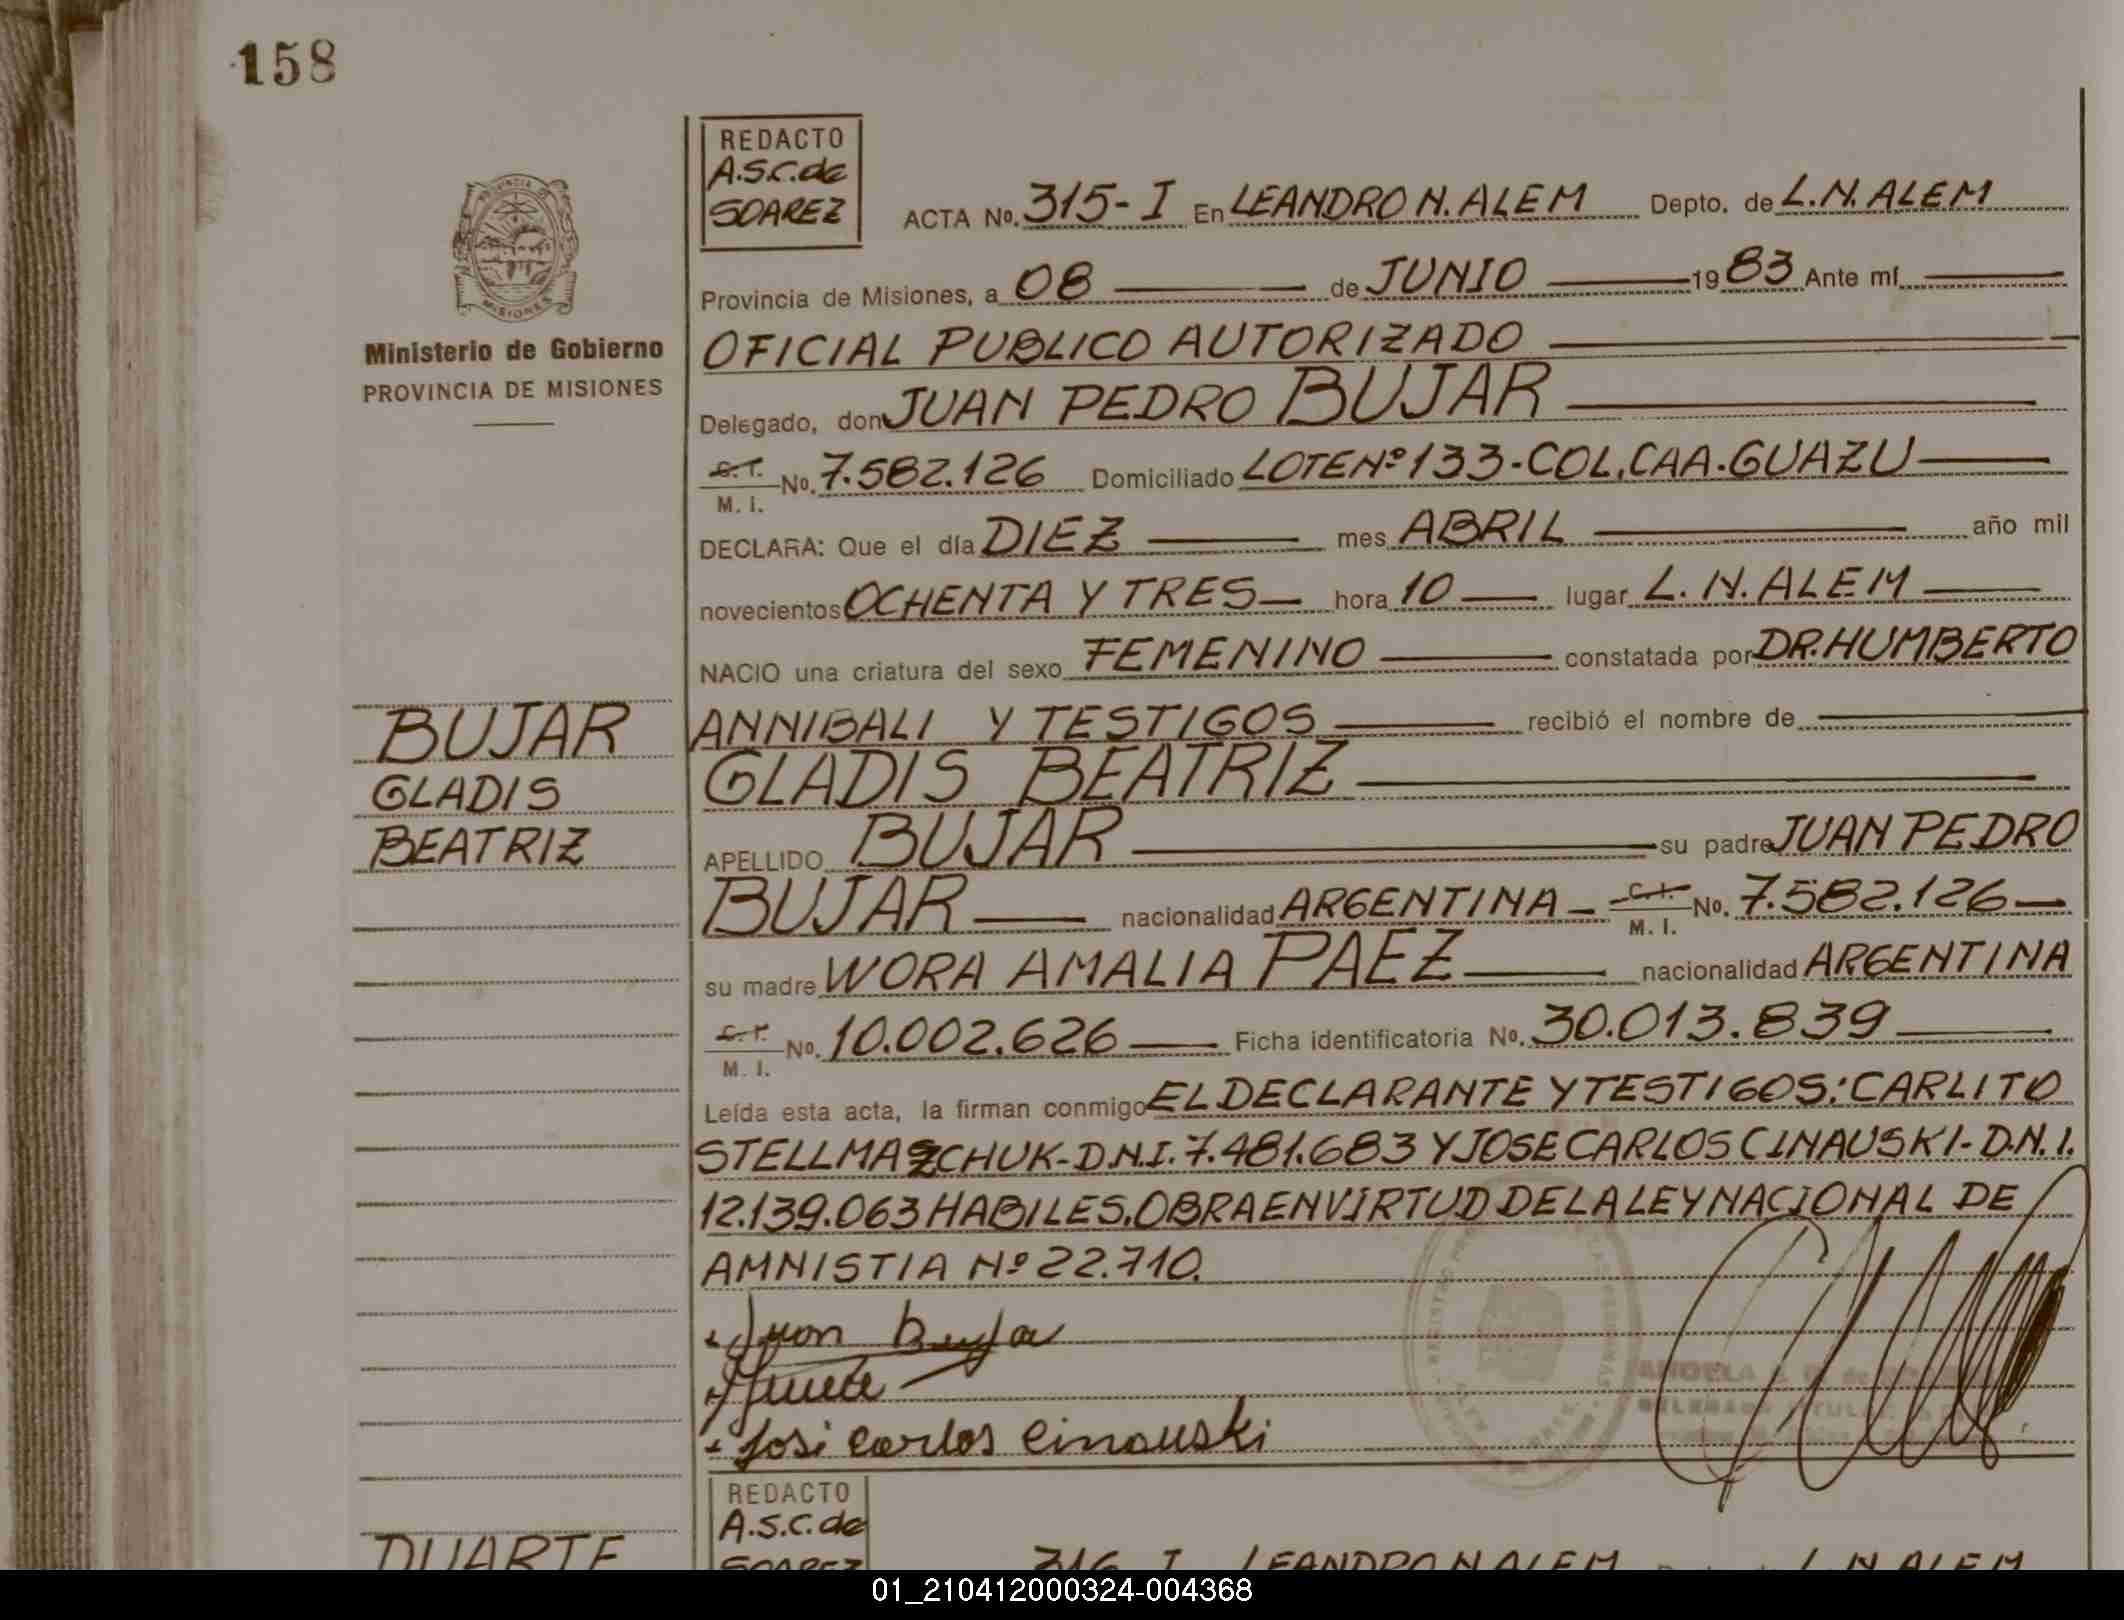 158
REDACTO
A.S.C. de
SOAREZ
ACTA No. 315-I En LEANDRO N. ALEM Depto. de L.N. ALEM
PROVINCIA DE
MISIONES
Ministerio de Gobierno
PROVINCIA DE MISIONES
Provincia de Misiones, a 08 de JUNIO 1983 Ante mí
OFICIAL PUBLICO AUTORIZADO
Delegado, don JUAN PEDRO BUJAR
C. I.
M. I. No. 7.582.126 Domiciliado LOTE Nº 133-COL. CAA-GUAZU
DECLARA: Que el día DIEZ mes ABRIL año mil
novecientos OCHENTA Y TRES hora 10 lugar L. N. ALEM
NACIO una criatura del sexo FEMENINO constatada por DR. HUMBERTO
ANNIBALI Y TESTIGOS recibió el nombre de
GLADIS BEATRIZ
APELLIDO BUJAR su padre JUAN PEDRO
BUJAR nacionalidad ARGENTINA C. I. M. I. No. 7.582.126
su madre WORA AMALIA PAEZ nacionalidad ARGENTINA
C. I.
M. I. No. 10.002.626 Ficha identificatoria No. 30.013.839
Leída esta acta, la firman conmigo EL DECLARANTE Y TESTIGOS: CARLITO
STELLMASZCHUK-D.N.I. 7.481.683 Y JOSE CARLOS CINAUSKI-D.N.I.
12.139.063 HABILES. OBRA EN VIRTUD DE LA LEY NACIONAL DE
AMNISTIA Nº 22.710.
BUJAR
GLADIS
BEATRIZ
Juan Bujar
José Carlos Cinauski
REDACTO
A.S.C. de
SOAREZ
316 I LEANDRO N ALEM L N ALEM
DUARTE
01_210412000324-004368